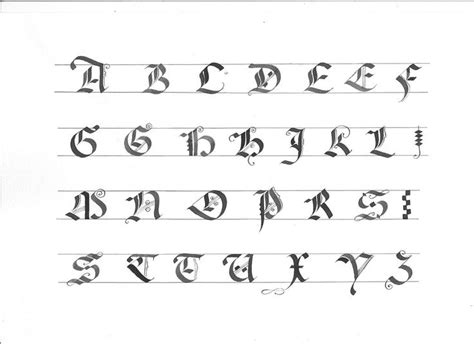 A B C D E E F
G G H H J K L
M N O P R S
S T T U X Y Z